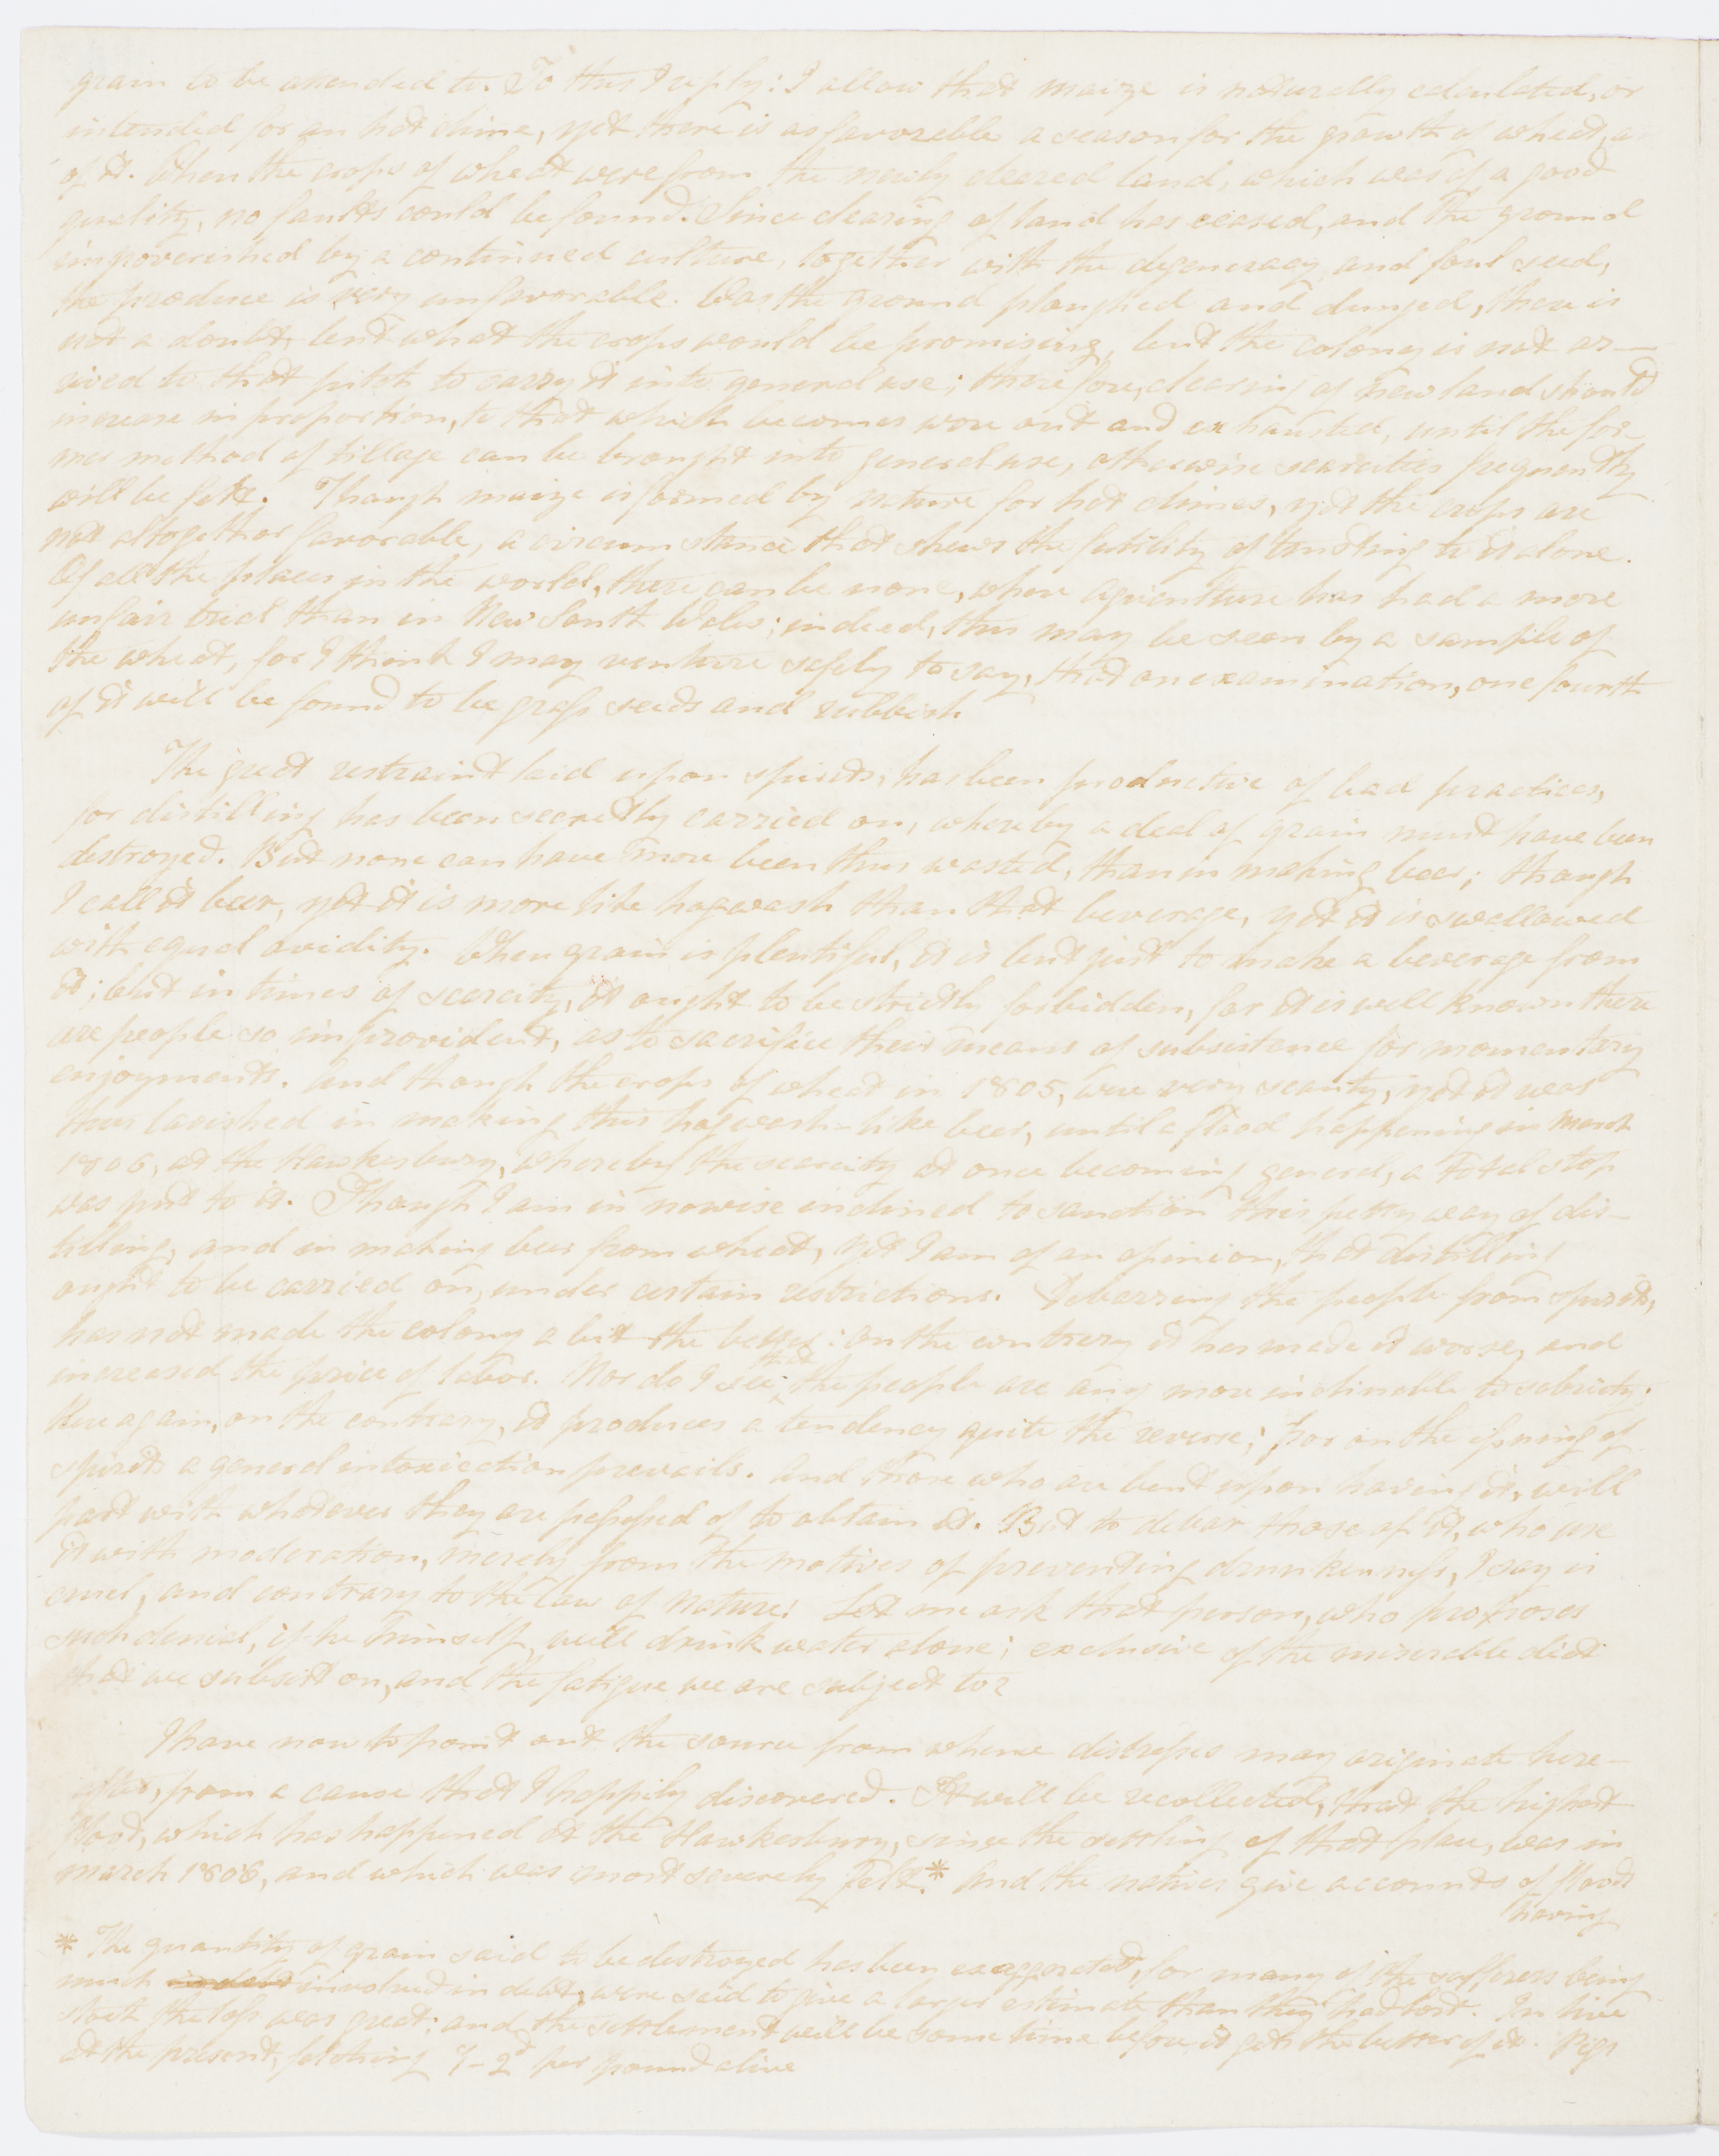 grain to be attended to. To this I reply: I allow that maize is naturally calculated, or
intended for an hot clime, yet there is as favorable a season for the growth of wheat, as
of it. When the crops of wheat were from the newly cleared land, which was of a good
quality, no faults could be found. Since clearing of land has ceased, and the ground
impoverished by a continued culture, together with the degeneracy and foul seed,
the produce is very unfavorable. Was the ground ploughed and dunged, there is
not a doubt, but what the crops would be promising, but the colony is not ar—
rived to that pitch to carry it into general use; therefore, clearing of new land should
increase in proportion, to that which becomes wore out and exhausted, until the for—
mer method of tillage can be brought into general use, otherwise scarcities frequently
will be felt. Though maize is formed by nature for hot climes, yet the crops are
not altogether favorable, a circumstance that shews the futility of trusting to it alone.
Of all the places in the world, there can be none, where agriculture has had a more
unfair trial than in New South Wales; indeed, this may be seen by a sample of
the wheat, for I think I may venture safely to say, that on examination, one fourth
of it will be found to be grass seeds and rubbish
The great restraint laid upon spirits, has been productive of bad practices,
for distilling has been secretly carried on, whereby a deal of grain must have been
destroyed. But none can have more been thus wasted, than in making beer; though
I call it beer, yet it is more like hogwash than that beverage, yet it is swallowed
with equal avidity. When grain is plentiful, it is but just to make a beverage from
it; but in times of scarcity, it ought to be strictly forbidden, for it is well known there
are people so improvident, as to sacrifice their means of subsistence for momentary
enjoyments. And though the crops of wheat in 1805, were very scanty, yet it was
thus lavished in making this hogwash-like beer, until a flood happening in March
1806, at the Hawkesbury, whereby the scarcity at once becoming general, a total stop
was put to it. Though I am in nowise inclined to sanction this petty way of dis—
tilling, and in making beer from wheat, yet I am of an opinion, that distilling
ought to be carried on, under certain restrictions. Debarring the people from spirits,
has not made the colony a bit the better: on the contrary it has made it worse, and
increased the price of labor. Nor do I see, that the people are any more inclinable to sobriety.
Here again, on the contrary, it produces a tendency quite the reverse; for on the issuing of
spirits a general intoxication prevails. And those who are bent upon having it, will
part with whatever they are possessed of to obtain it. But to debar those of it, who use
it with moderation, merely from the motives of preventing drunkenness, I say is
cruel, and contrary to the law of nature! Let me ask that person, who proposes
such denial, if he himself will drink water alone; exclusive of the miserable diet
that we subsist on, and the fatigue we are subject to?
I have now to point out the source from whence distresses may originate here—
after, from a cause that I happily discovered. It will be recollected, that the highest
flood, which has happened at the Hawkesbury, since the settling of that place, was in
march 1806, and which was most severely felt.* And the natives give accounts of floods
having
* The quantity of grain said to be destroyed has been exaggerated, for many of the sufferers being
much involved in debt, were said to give a larger estimate than they had lost. In live
stock the loss was great: and the settlement will be some time before it gets the better of it. Pigs
at the present, fetching 1-2d per pound alive